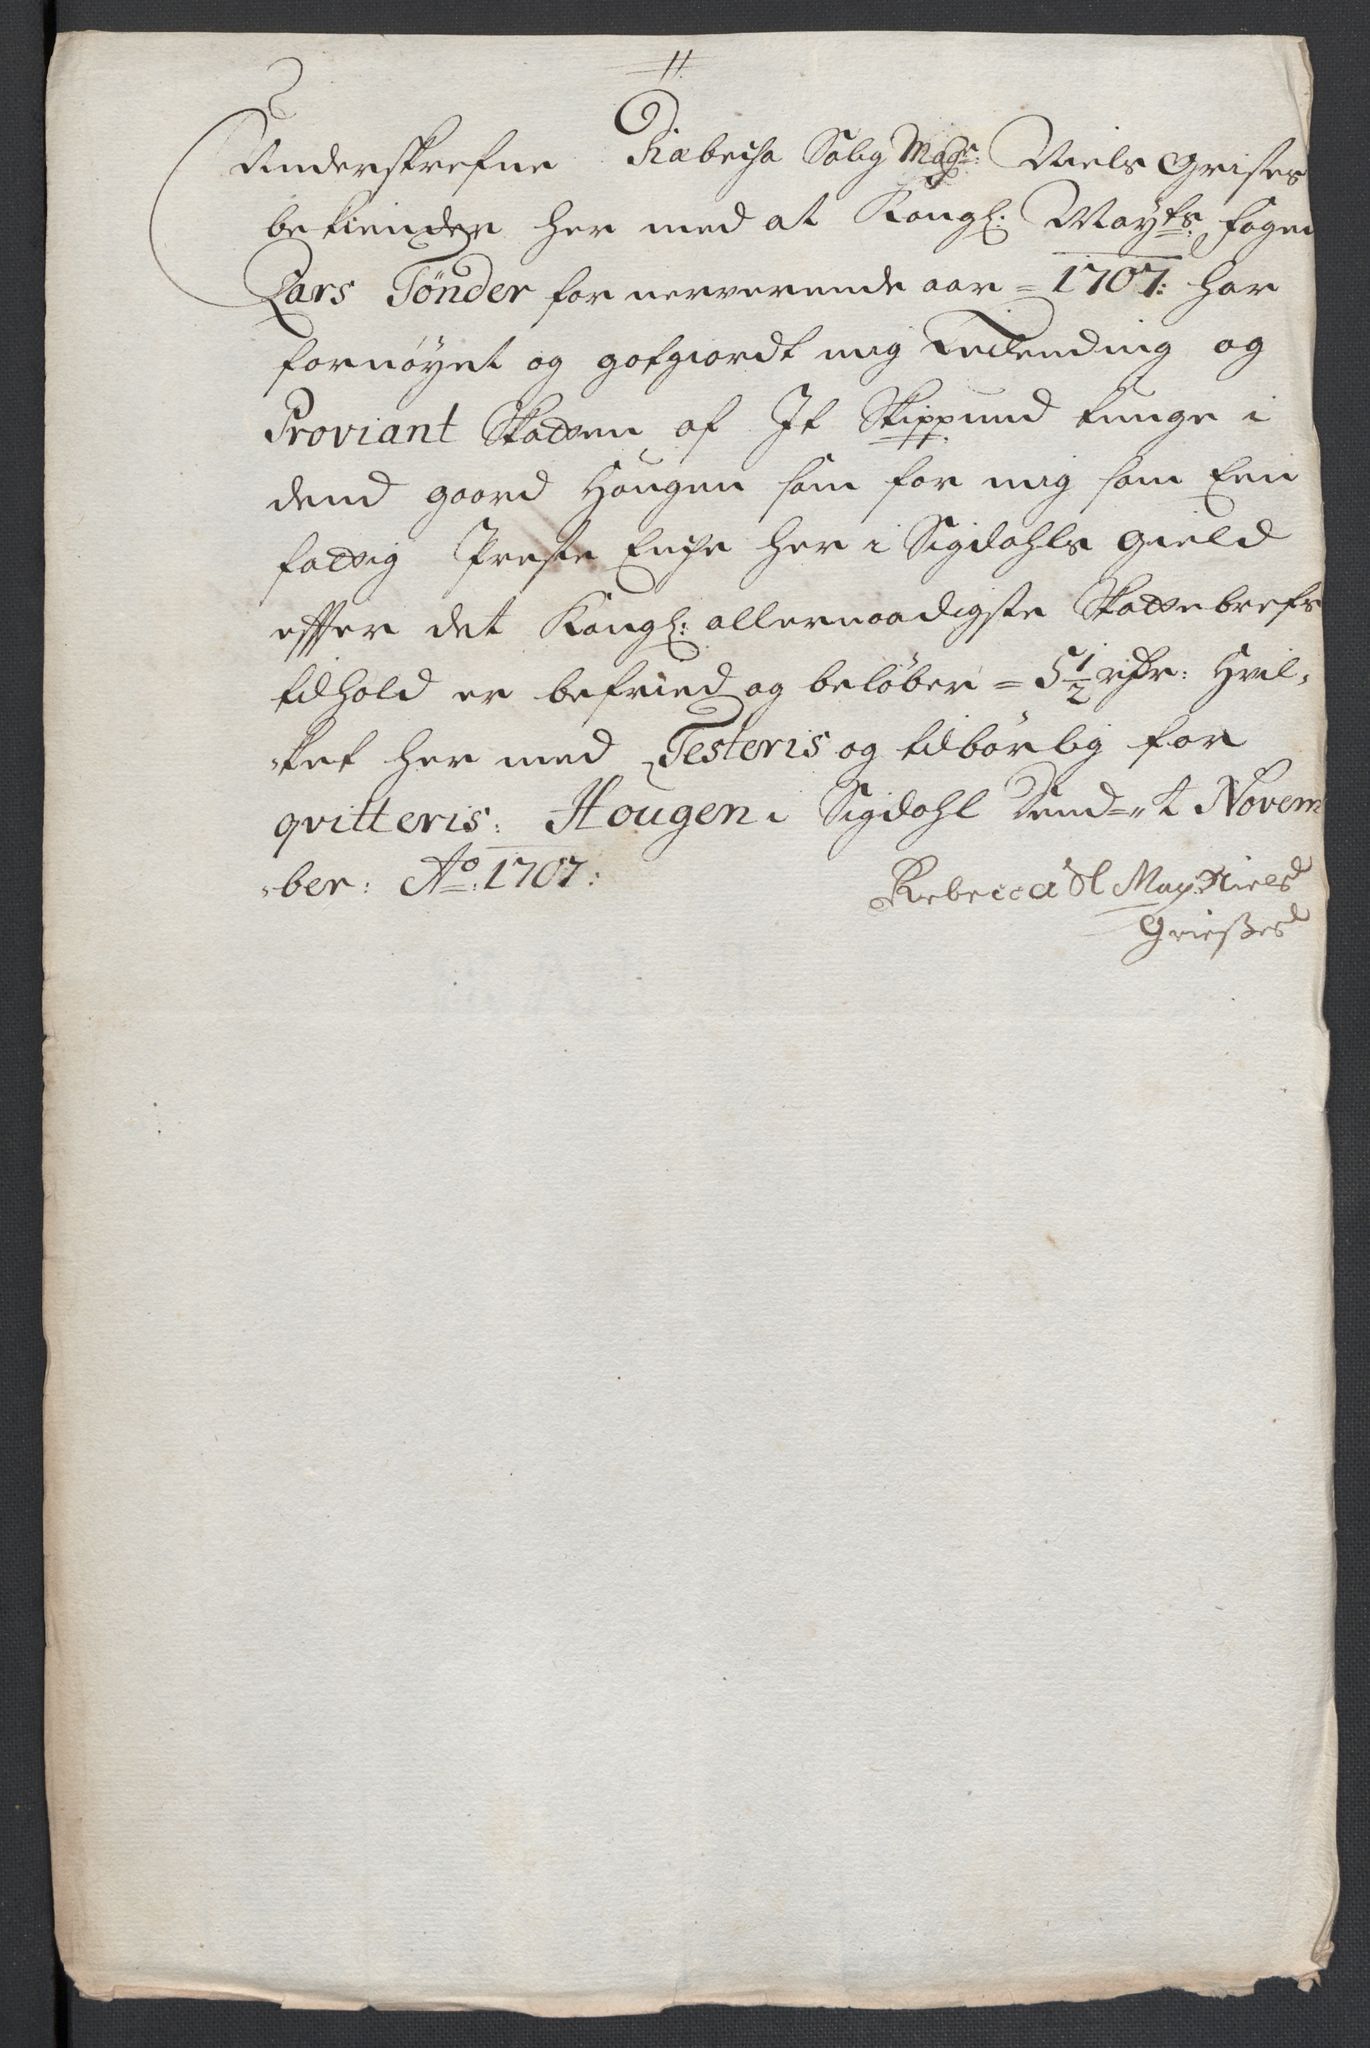 Underskrefne Ræbecha Salig Magr: Niels Grises
bekiender her med at Kongl: Mayts: foged
Lars Tønder for nerverende aar = 1707: har
fornøyet og gotgiordt mig Leilending og
Proviant Skatten af It Skippund tunge i
dend gaard Hougen som for mig som Een
fattig Preste Enche her i Sigdahls gield
effter det Kongl: allernaadigste Skattebrefs
tilhold er befried og beløber = 5½ rdr: Hvil-
-ket her med Testeris og tilbørlig for
qvitteris: Hougen i Sigdahl dend Novem
-ber: Ao: 1707:
Rebecca Sl Mag: Niels
Grießes